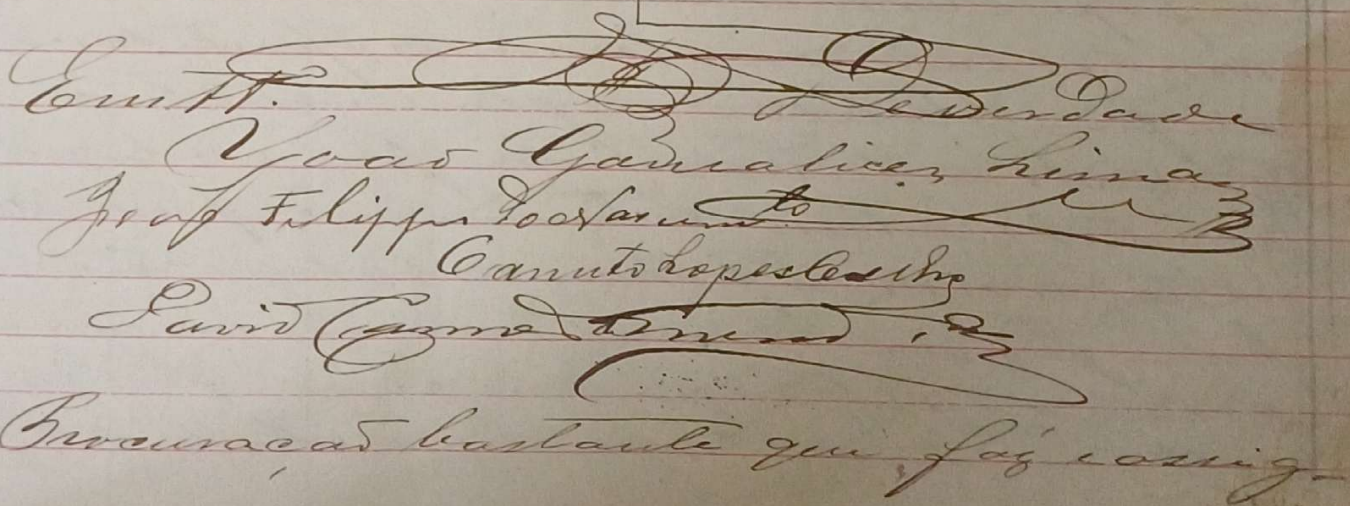 Em tt. De verdade
Joaõ Gonçalves Lima
José Filippe do Nascim.to
Canuto Lopes
David
Procuraçaõ bastante que fáz e assig-